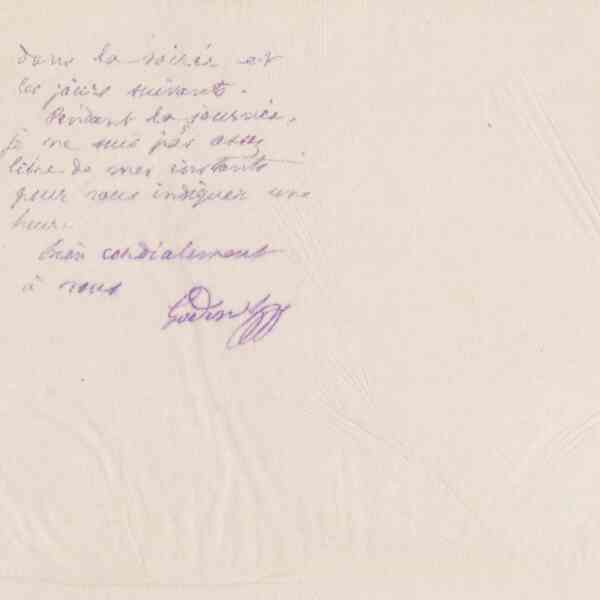 dans la soirée et
les jours suivants.
Pendant la journée,
je ne suis pas assez
libre de mes instants
pour vous indiquer une
heure.
bien cordialement
à vous
Godin